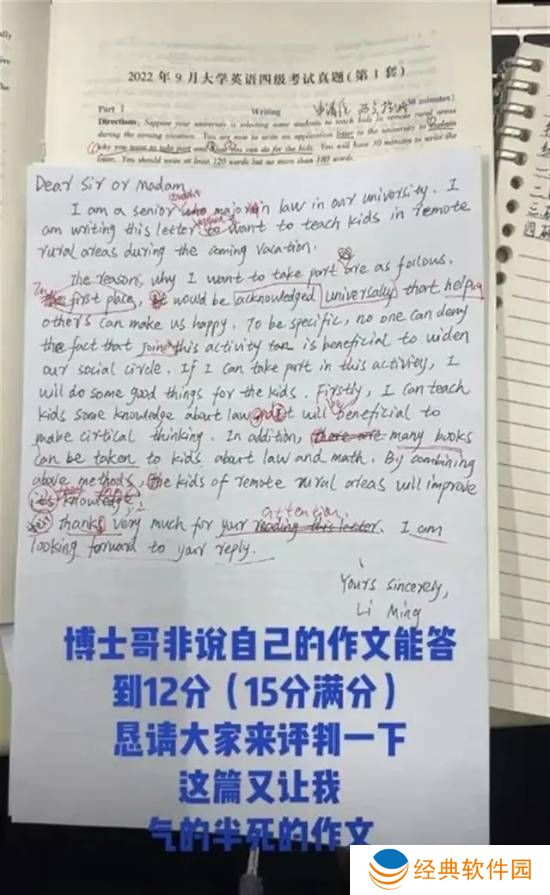 2022年9月大学英语四级考试真题(第1套)
Part I Writing minutes)
Directions: Suppose your university is selecting some students to teach kids in remote rural areas
during the coming vacation. You are now to write an application letter to the university to
why you want to take part and you can do for the kids. You will have 30 minutes to write the
letter. You should write at least 120 words but no more than 180 words.
Dear Sir or Madam
I am a senior who major in law in our university. I
am writing this letter to want to teach kids in remote
rural areas during the coming vacation.
The reasons why I want to take part are as follows.
The first place, would be acknowledged universally that helping
others can make us happy. To be specific, no one can deny
the fact that join this activity is beneficial to widen
our social circle. If I can take part in this activity, I
will do some good things for the kids. Firstly, I can teach
kids some knowledge about law and it will be beneficial to
make cirtical thinking. In addition, there are many books
can be taken to kids about law and math. By combining
above methods, the kids of remote rural areas will improve
its knowledge.
attention.
thanks very much for your reading this letter. I am
looking forward to your reply.
Yours sincerely,
Li Ming
博士哥非说自己的作文能答
到12分(15分满分)
恳请大家来评判一下
这篇又让我
气的半死的作文
经典软件园